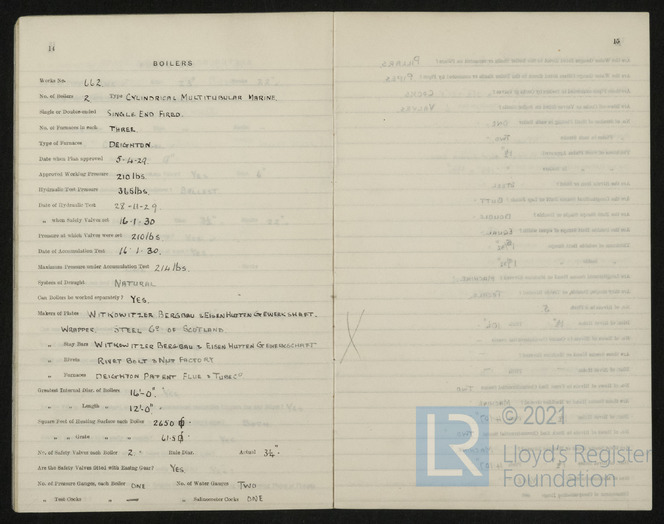 14
BOILERS
Works No. 662.
No. of Boilers 2 Type CYLINDRICAL MULTITUBULAR MARINE.
Single or Double-ended SINGLE END FIRED.
No. of Furnaces in each THREE.
Type of Furnaces DEIGHTON
Date when Plan approved 5-4-29.
Approved Working Pressure 210 lbs.
Hydraulic Test Pressure 365 lbs.
Date of Hydraulic Test 28-11-29.
„ when Safety Valves set 16-1-30
Pressure at which Valves were set 210 lbs.
Date of Accumulation Test 16-1-30.
Maximum Pressure under Accumulation Test 214 lbs.
System of Draught NATURAL
Can Boilers be worked separately? YES.
Makers of Plates WITKOWITZER BERGBAU & EISEN HUTTEN GEWERKSHAFT.
WRAPPER. STEEL Co OF SCOTLAND.
„ Stay Bars WITKOWITZER BERGBAU & EISEN HUTTEN GEWERKSCHAFT
„ Rivets RIVET BOLT & NUT FACTORY
„ Furnaces DEIGHTON PATENT FLUE & TUBE Co
Greatest Internal Diar. of Boilers 16'-0"
„ „ Length „ 12'-0".
Square Feet of Heating Surface each Boiler 2650
„ „ Grate „ „ 61.5
No. of Safety Valves each Boiler 2. Rule Diar. Actual 3¼".
Are the Safety Valves fitted with Easing Gear? YES.
No. of Pressure Gauges, each Boiler ONE No. of Water Gauges TWO
„ Test Cocks „ — „ Salinometer Cocks ONE
15
LR © 2021
Lloyd's Register
Foundation